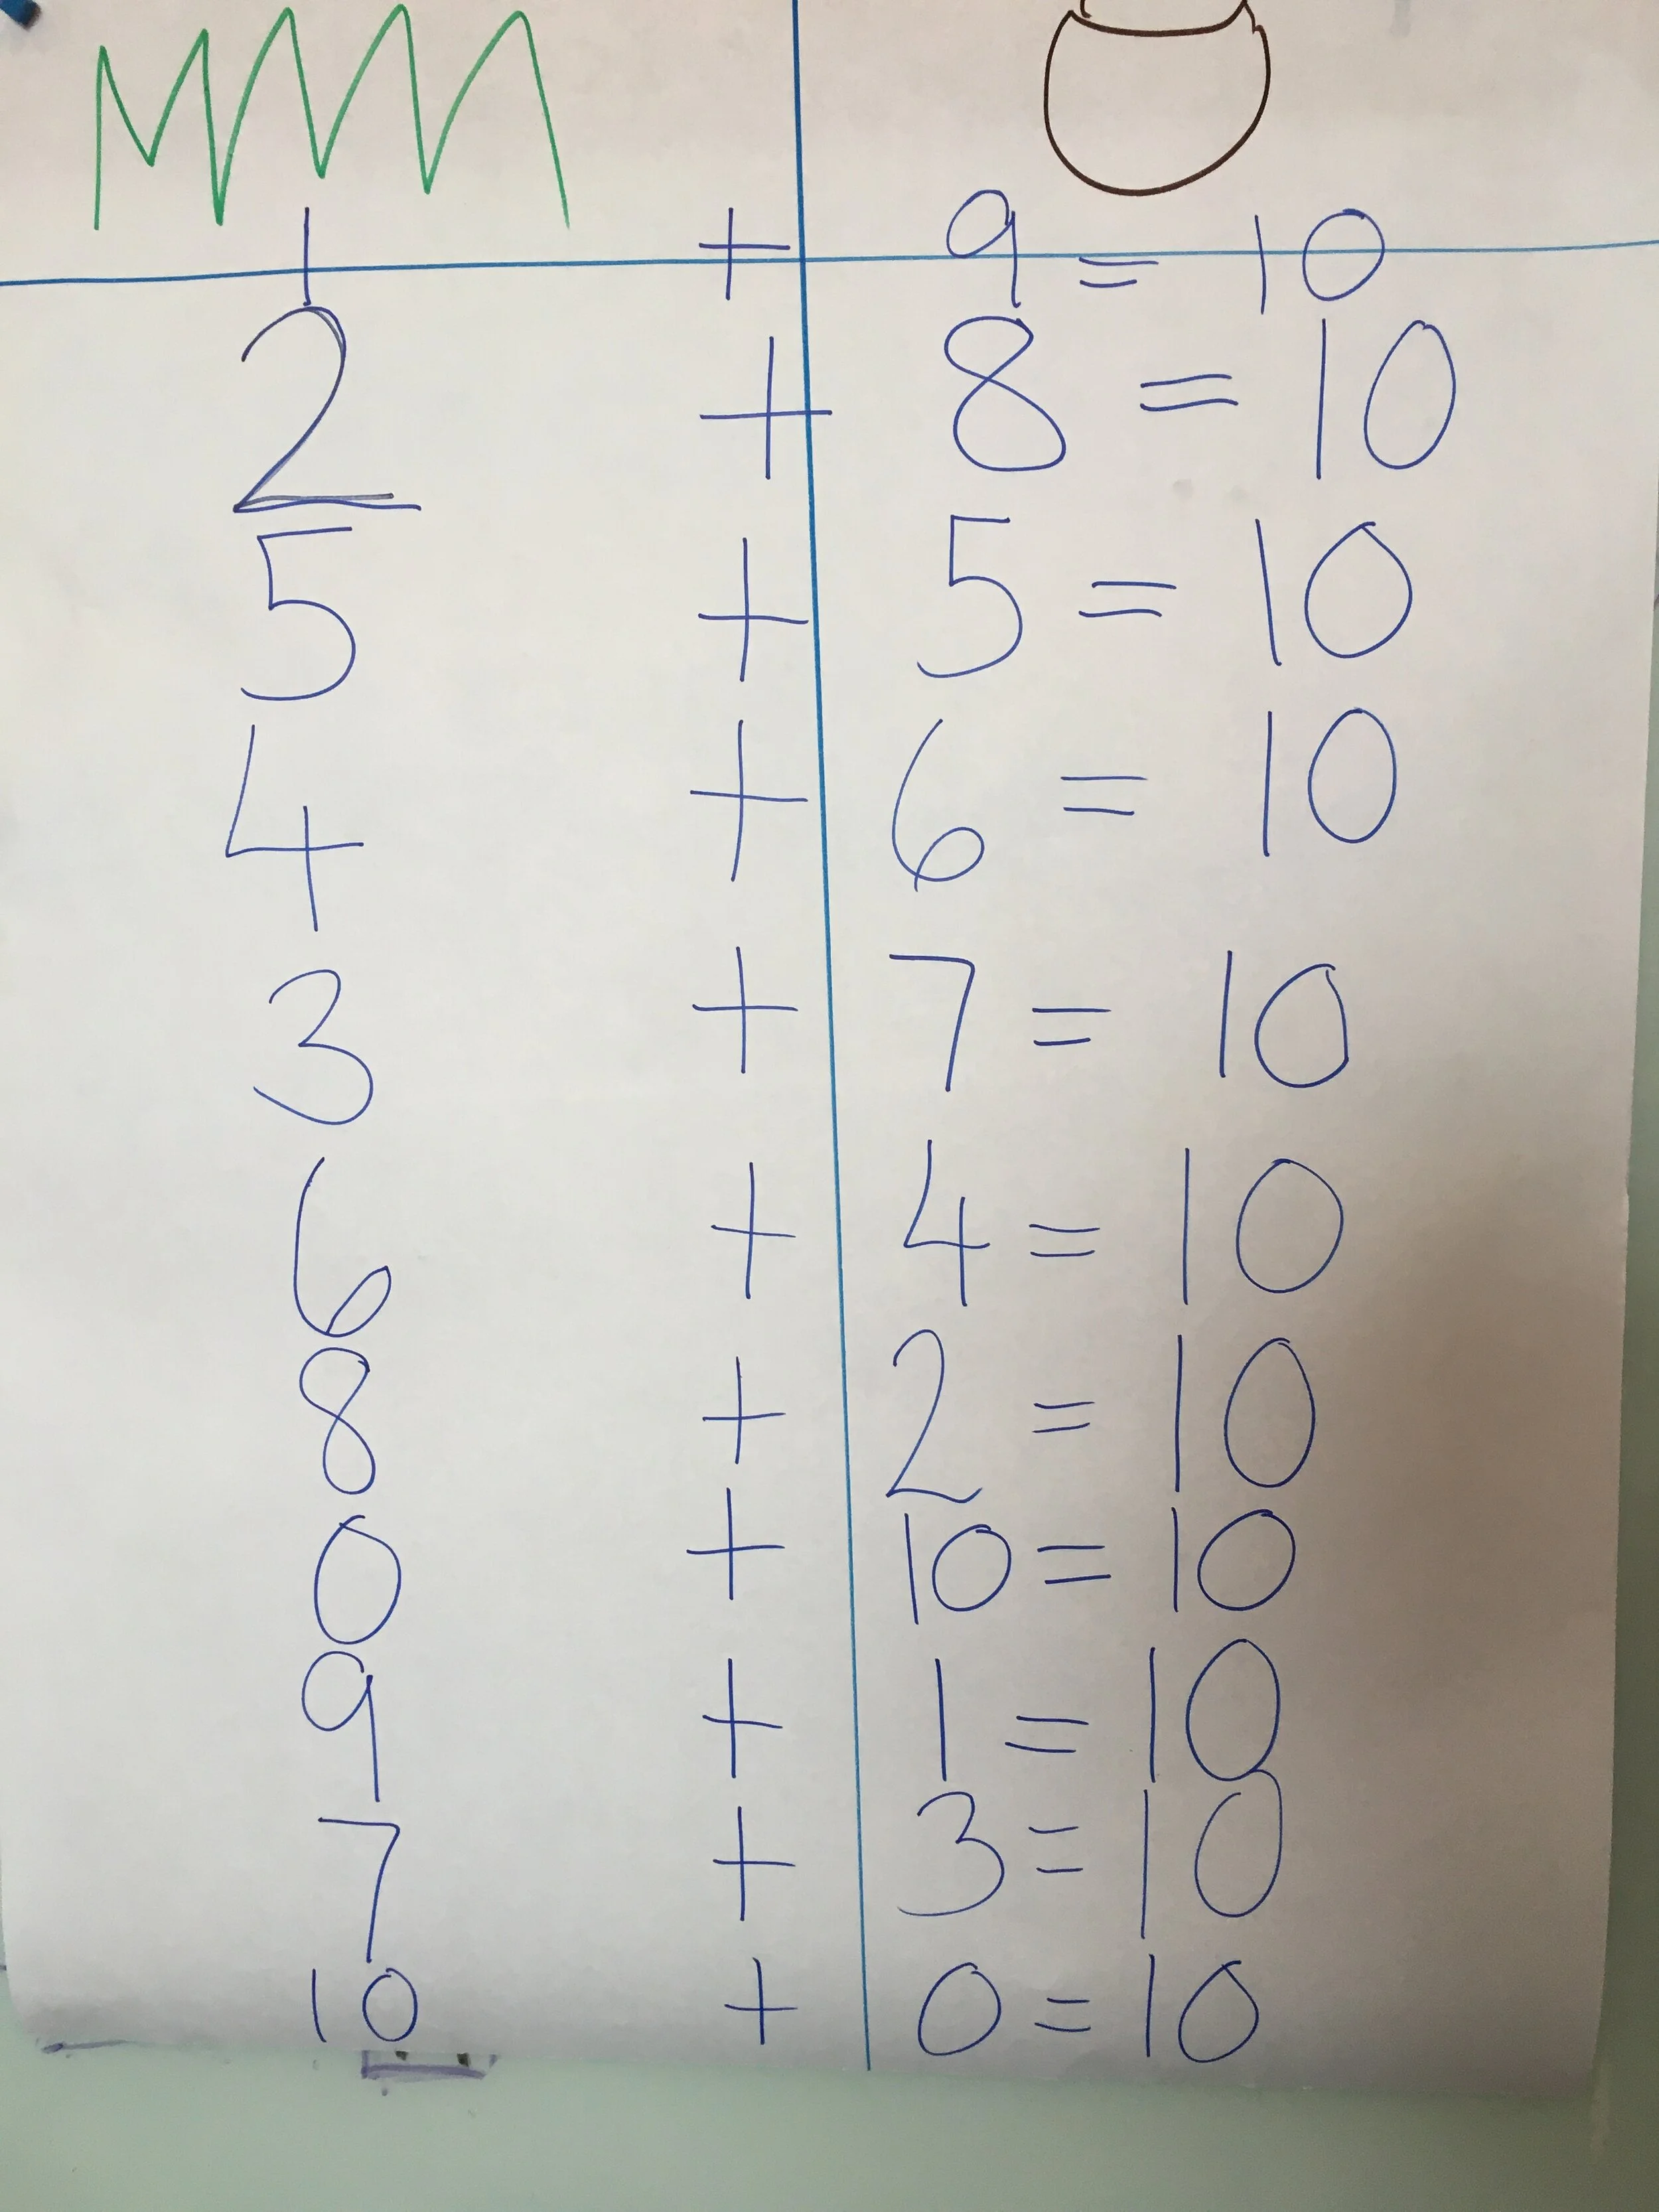 1 + 9 = 10
2 + 8 = 10
5 + 5 = 10
4 + 6 = 10
3 + 7 = 10
6 + 4 = 10
8 + 2 = 10
0 + 10 = 10
9 + 1 = 10
7 + 3 = 10
10 + 0 = 10